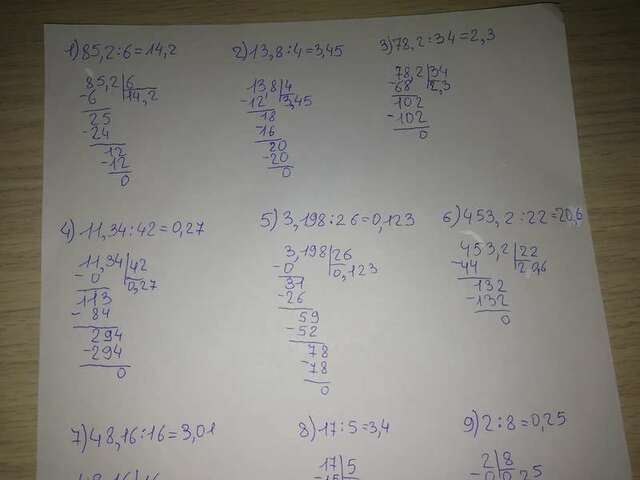 1) 85,2:6=14,2
85,2|6
-6 |14,2
25
-24
12
-12
0
2) 13,8:4=3,45
13,8|4
-12 |3,45
18
-16
20
-20
0
3) 78,2:34=2,3
78,2|34
-68 |2,3
102
-102
0
4) 11,34:42=0,27
11,34|42
-0 |0,27
113
-84
294
-294
0
5) 3,198:26=0,123
3,198|26
-0 |0,123
31
-26
59
-52
78
-78
0
6) 453,2:22=20,6
453,2|22
-44
132
-132
0
7) 48,16:16=3,01
8) 17:5=3,4
17|5
9) 2:8=0,25
2|8
-0|0,25